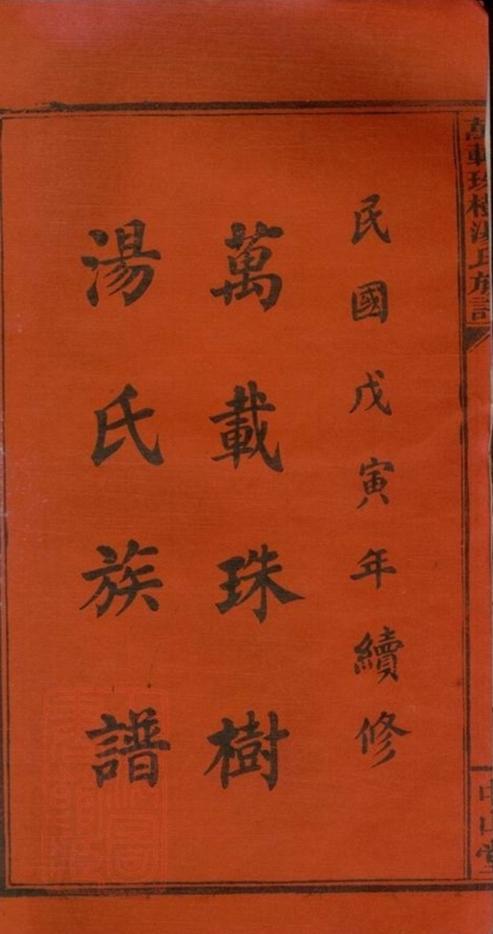 萬載珠樹湯氏族譜
中山堂
民國戊寅年續修
萬載珠樹
湯氏族譜